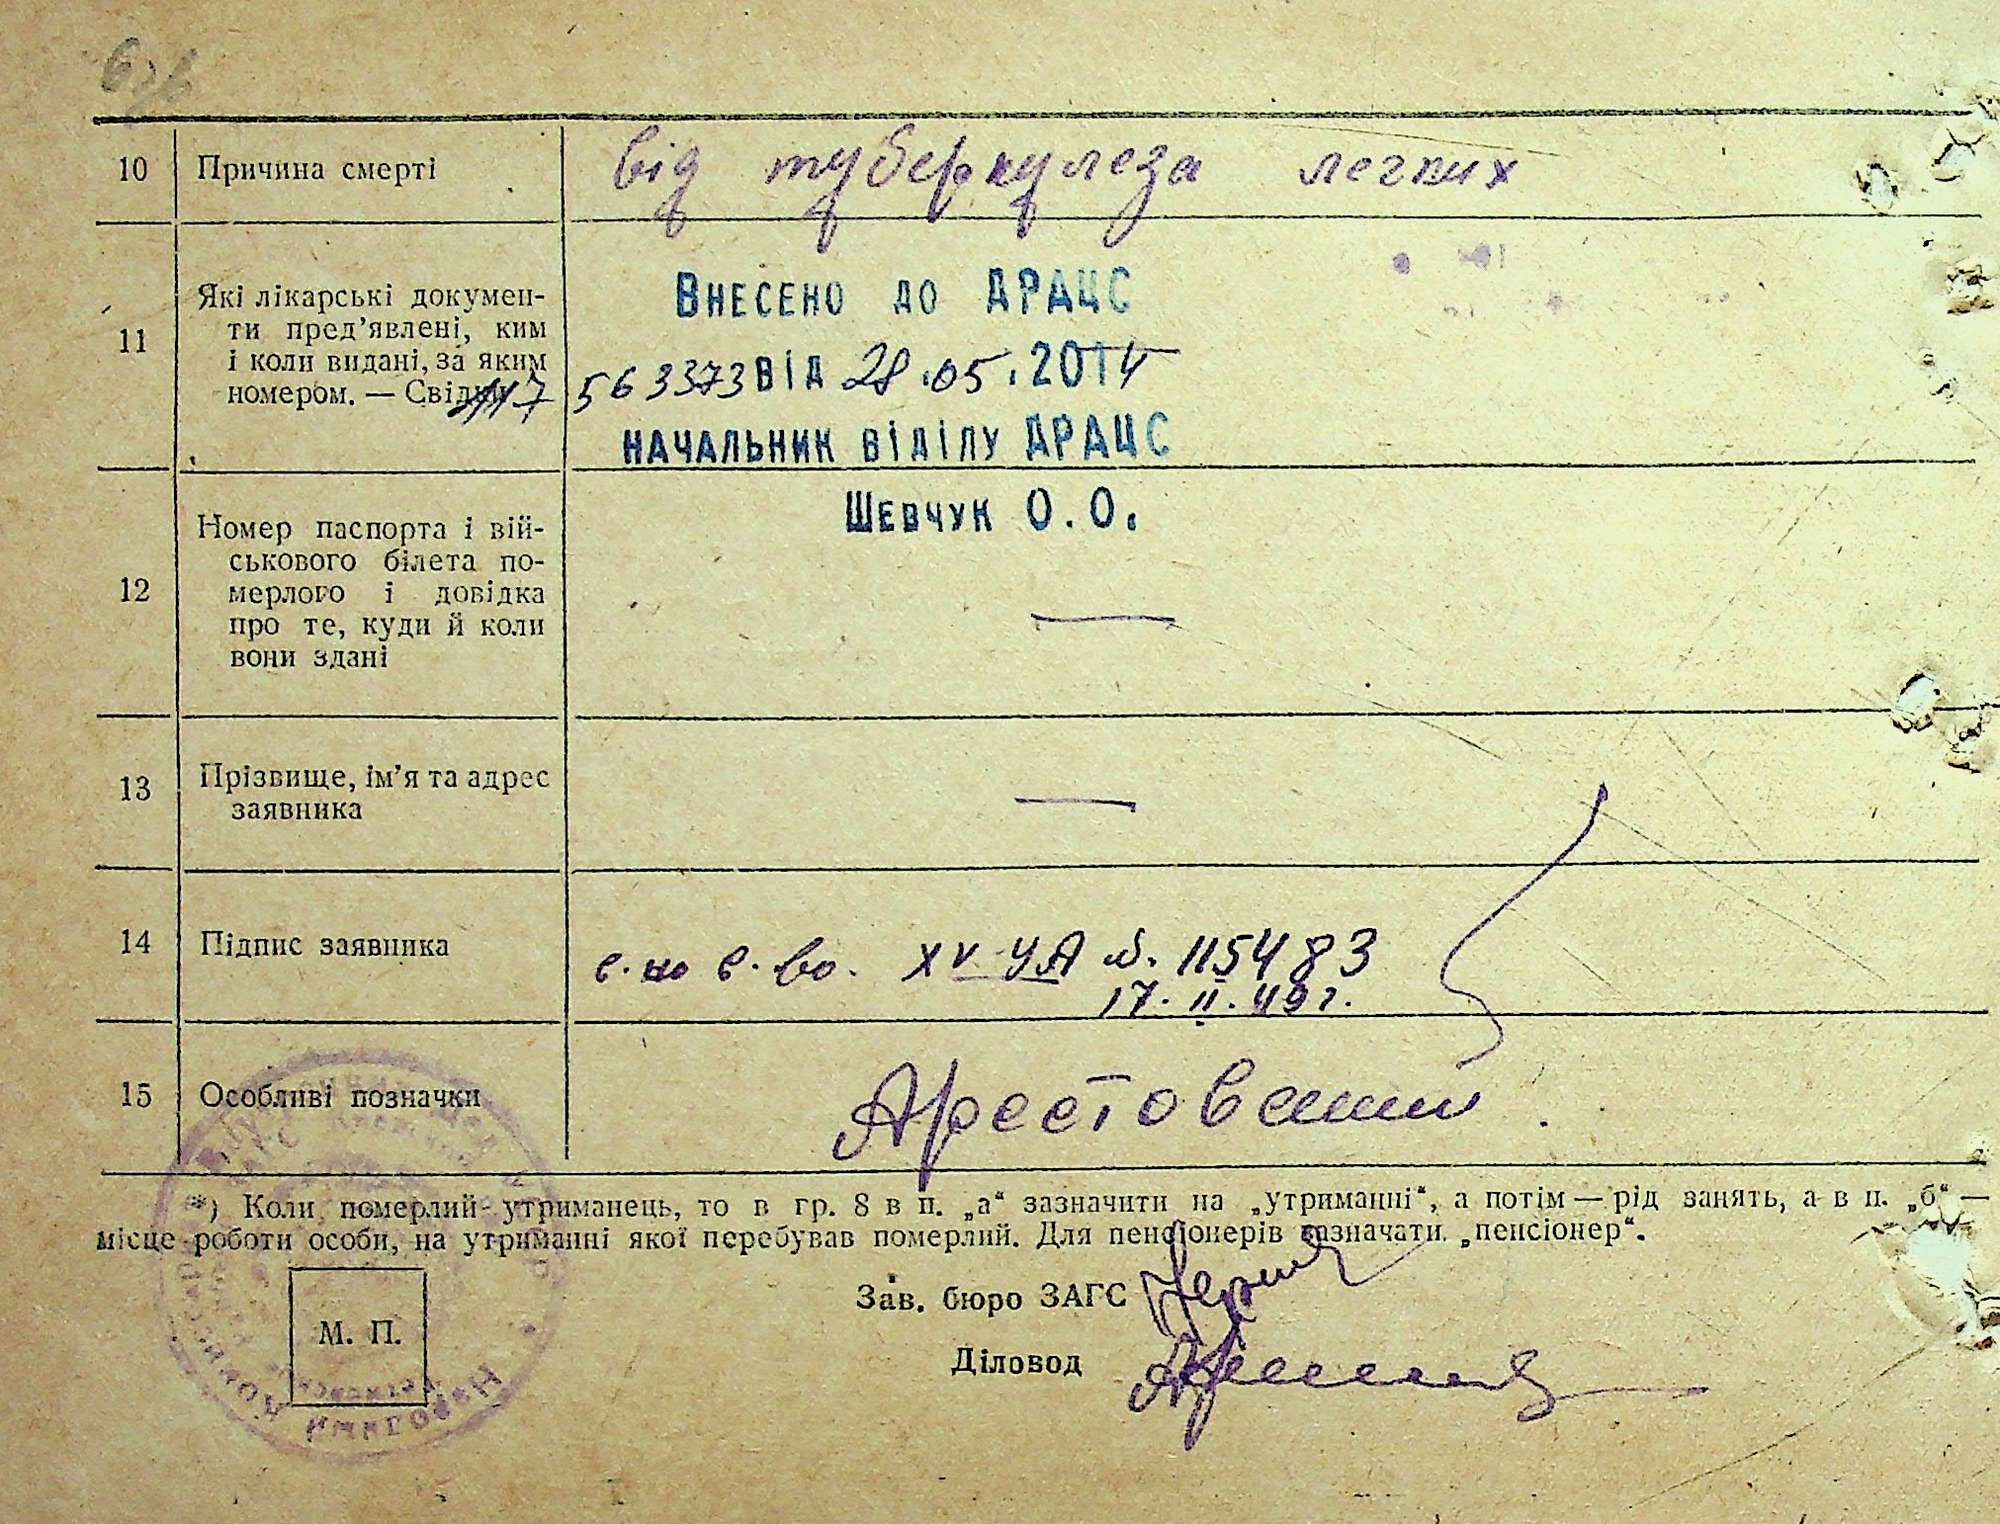 10 Причина смерті від туберкулеза легких
Внесено до ДРАЦС
11 Які лікарські докумен-
ти пред’явлені, ким
і коли видані, за яким
номером. — Свід
563373 від 28.05.2014
начальник віділу ДРАЦС
Шевчук О.О.
12 Номер паспорта і вій-
ськового білета по-
мерлого і довідка
про те, куди й коли
вони здані —
13 Прізвище, ім’я та адрес
заявника —
14 Підпис заявника с. но с. во. XV УА №. 115483
17. II. 49 г.
15 Особливі позначки Арестований.
*) Коли померлий утриманець, то в гр. 8 в п. „а“ зазначити на „утриманні“, а потім — рід занять, а в п. „б“ —
місце роботи особи, на утриманні якої перебував померлий. Для пенсіонерів зазначати „пенсіонер“.
Зав. бюро ЗАГС
М. П.
Діловод